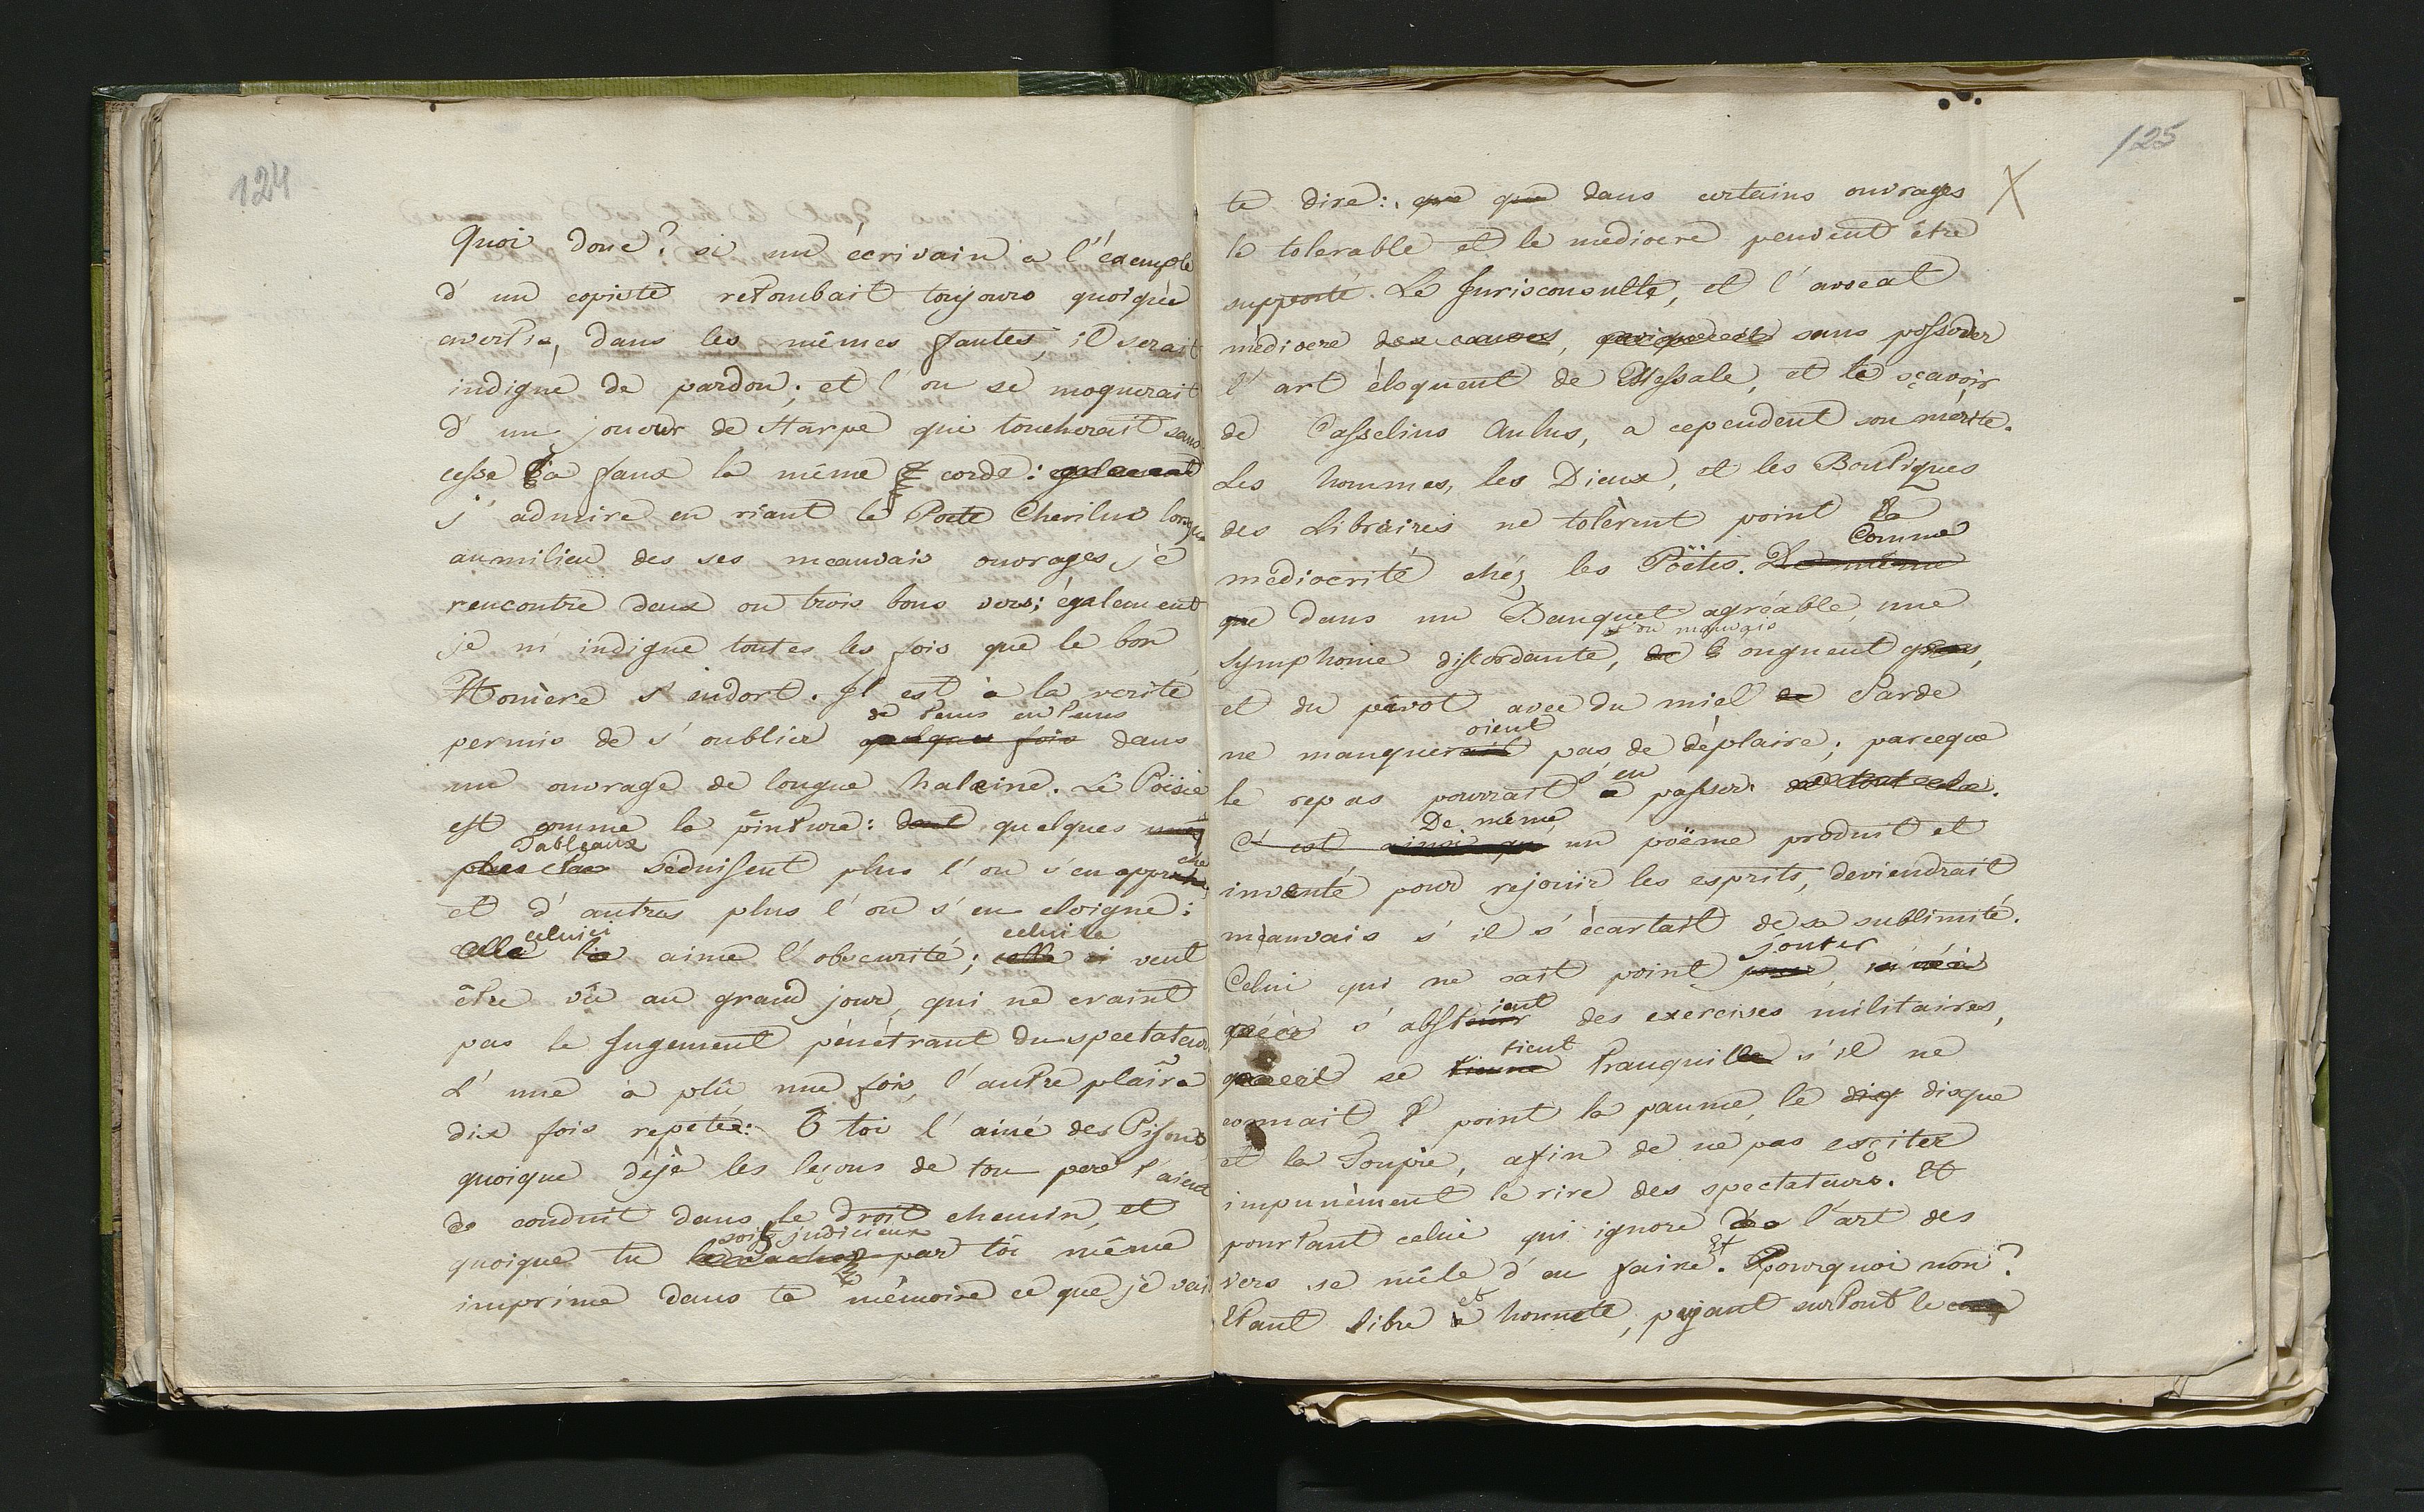 124
Quoi donc? si un écrivain a l'éxemple
d'un copiste retombait toujours quoique
averti, dans les mêmes fautes, il serait
indigne de pardon; et l'on se moquerait
d'un joueur de Harpe qui toucherait sans
cesse à faux la même corde:
j'admire en riant le Poete Cherilus lorsque
aumilieu des ses meauvais ouvrages, je
rencontre deux ou trois bons vers; également
je m'indigne toutes les fois que le bon
Homère s'endort. Il est à la verité
de tems en tems
permis de s'oublier quelques fois dans
un ouvrage de longue haleine. La Poësie
est comme la peinture: dont quelques unes
Tableaux
séduisent plus l'on s'en approche
et d'autres plus l'on s'en eloigne:
celuici celui la
celle la aime l'obscurité; celle ci veut
être vû au grand jour, qui ne craint
pas le Jugement pénétrant du spectateur
L'une à plû une fois, l'autre plaira
dix fois repetée: Ô toi l'ainé des Pisons
quoique déjà les leçons de ton pere t'aient
conduit dans le droit chemin, et
sois judicieux
quoique tu par toi même
imprime dans ta mêmoire ce que je vais
125
X
te dire: que que dans certains ouvrages
le tolerable et le mediocre peuvent être
supporté. Le Jurisconsulte, et l'avocat
médiocre des causes, sans posseder
l'art éloquent de Messale, et le sçavoir
de Casselius Aulus, a cependent son mérite.
Les hommes, les Dieux, et les Boutiques
des Libraires ne tolèrent point la
Comme
mediocrité chéz les Poëtes. De même
que dans un Banquet agréable, une
du mauvais
symphonie discordante, de l'onguent gras,
et du pavot avec du miel de Sarde
oient
ne manquerait pas de déplaire; parceque
s'en
le repas pourrait passer de tout cela.
De même
C'est ainsi qu' un poëme produit et
invente pour rejouir les esprits, deviendrait
meauvais s'il s'écartait de sa sublimité.
jouter
Celui qui ne sait point
ient
s'abstenir des exercises militaires,
tient
se tienne tranquille s'il ne
connait point la paume, le disq disque
et la Toupie, afin de ne pas exciter
impunément le rire des spectateurs. Et
pourtant celui qui ignore l'art des
Et
vers se mêle d'en faire. Pourquoi non?
et
Etant libre honnete, payant surtout le